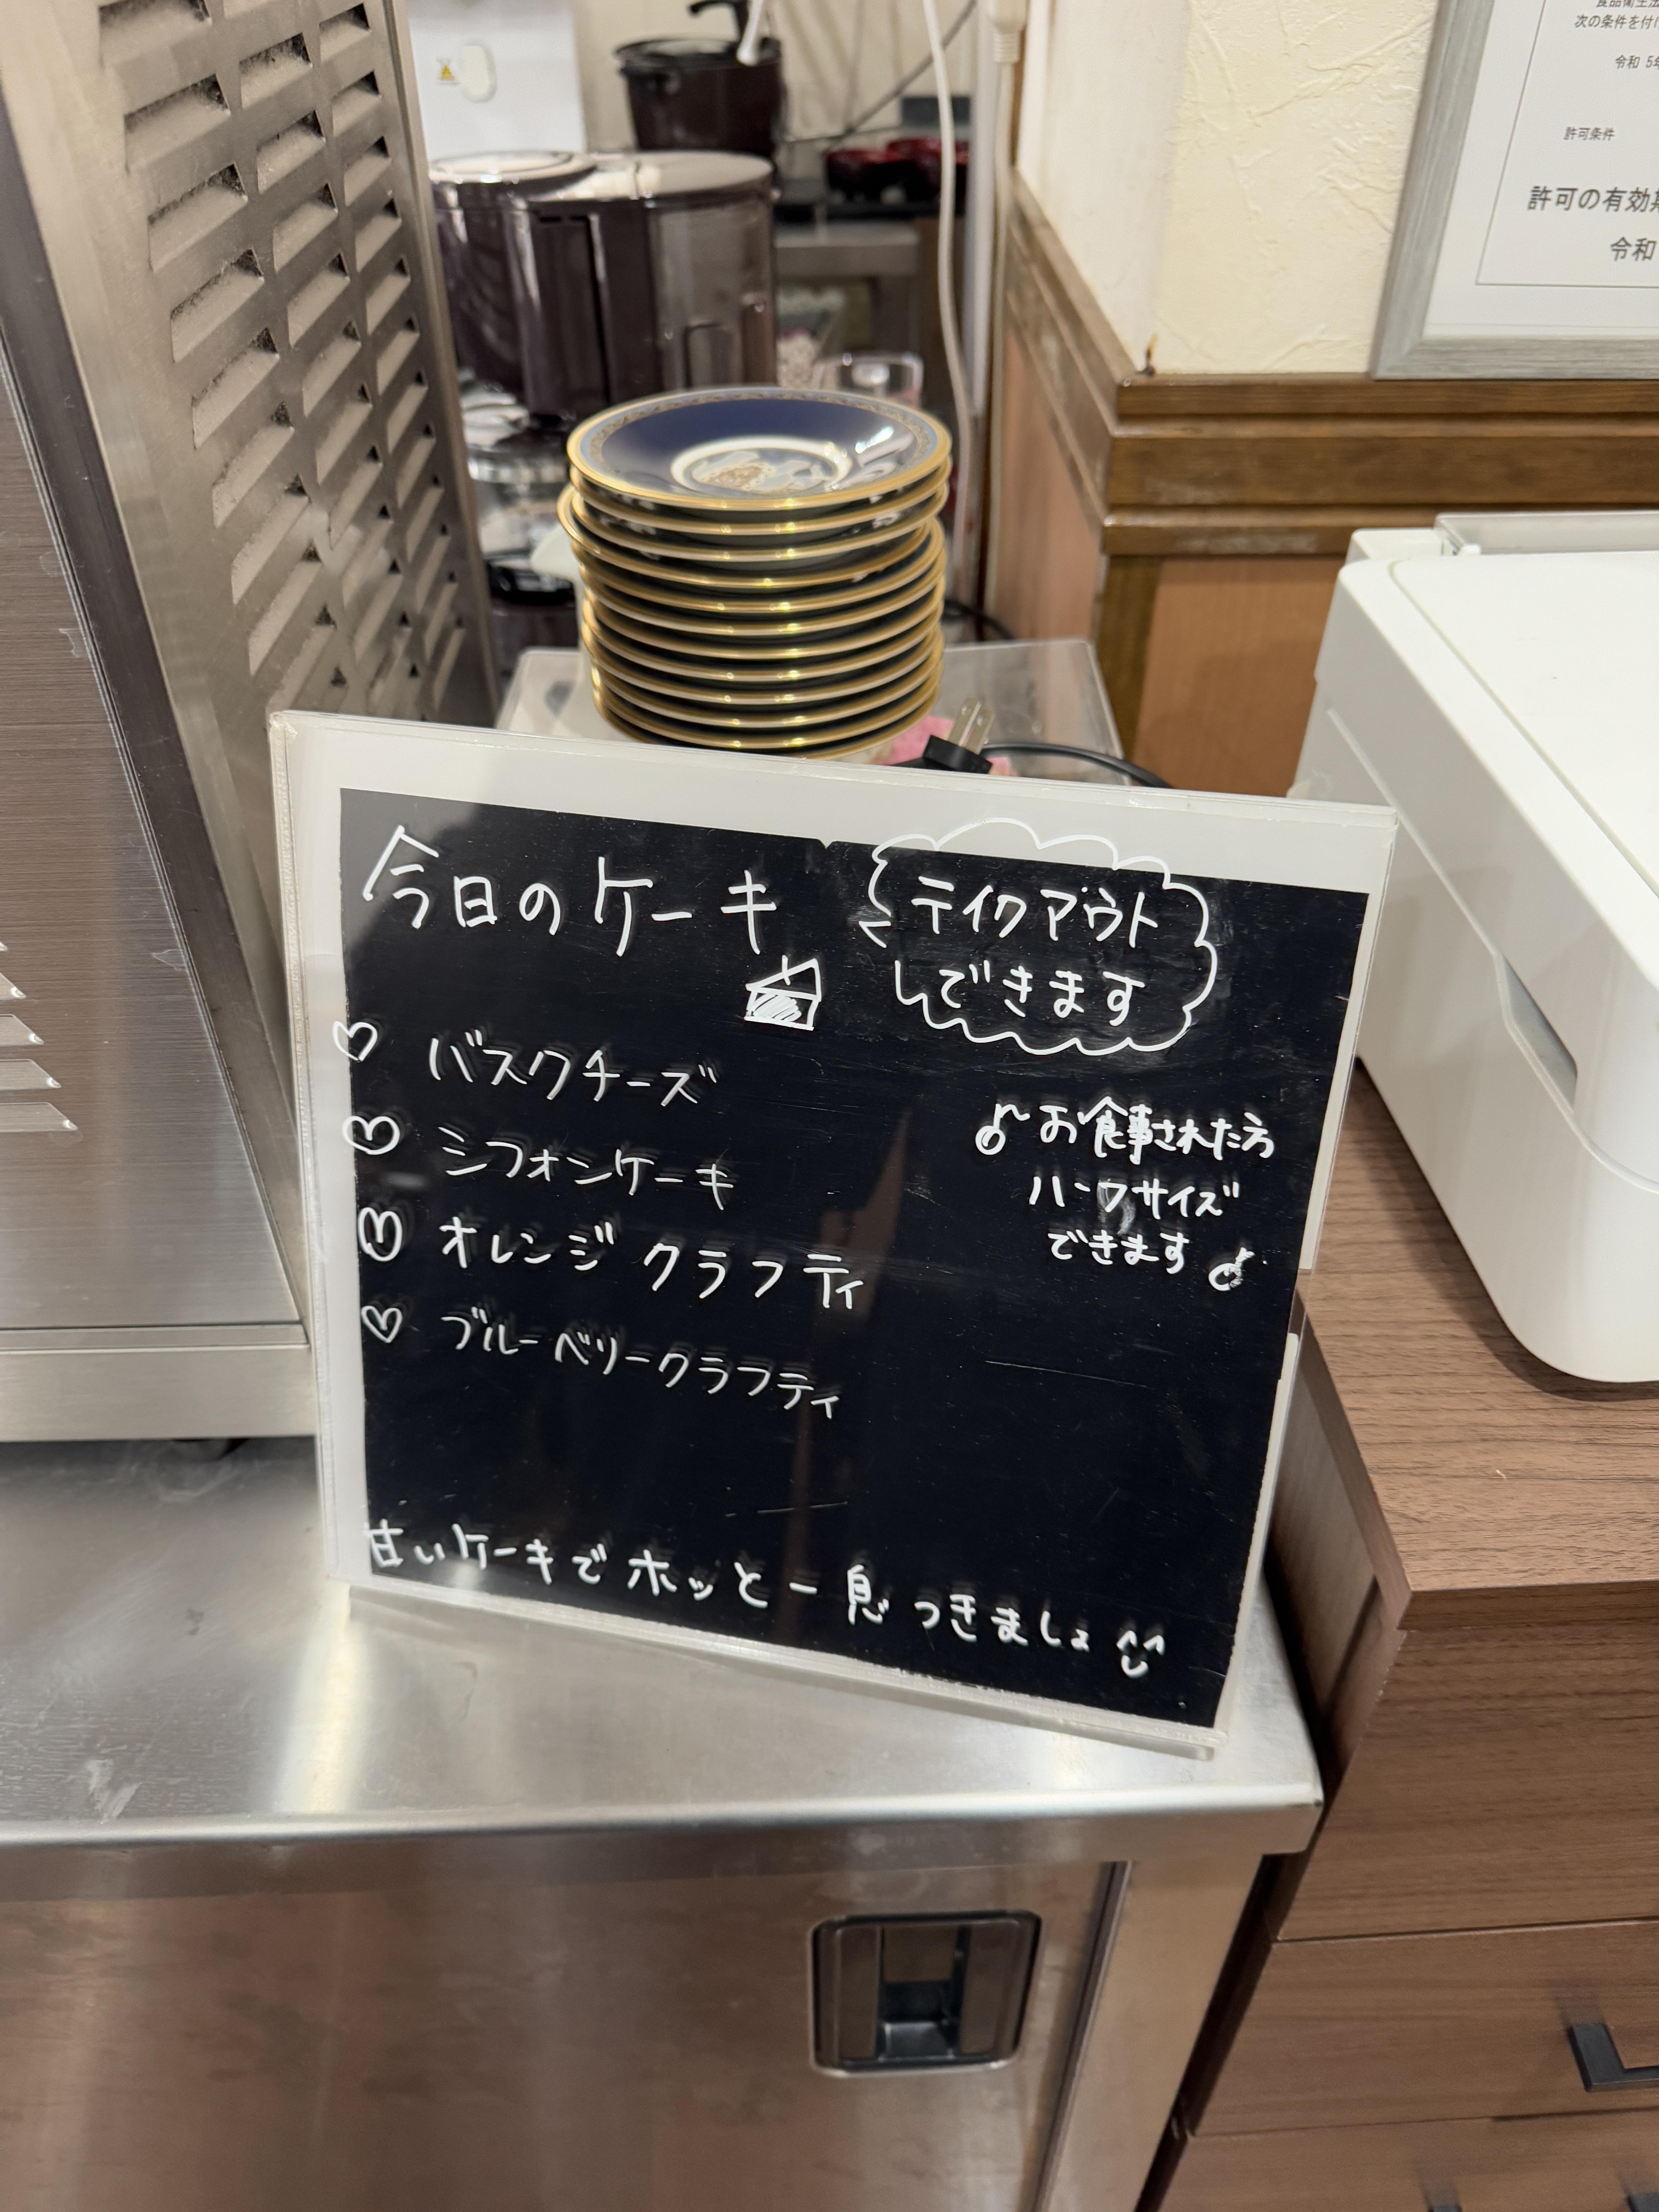 今日のケーキ
テイクアウト
できます
バスクチーズ
シフォンケーキ
オレンジクラフティ
ブルーベリークラフティ
お食事された方
ハーフサイズ
できます
甘いケーキでホッと一息つきましょ
次の条件を付け
令和 5年
許可条件
許可の有効期
令和